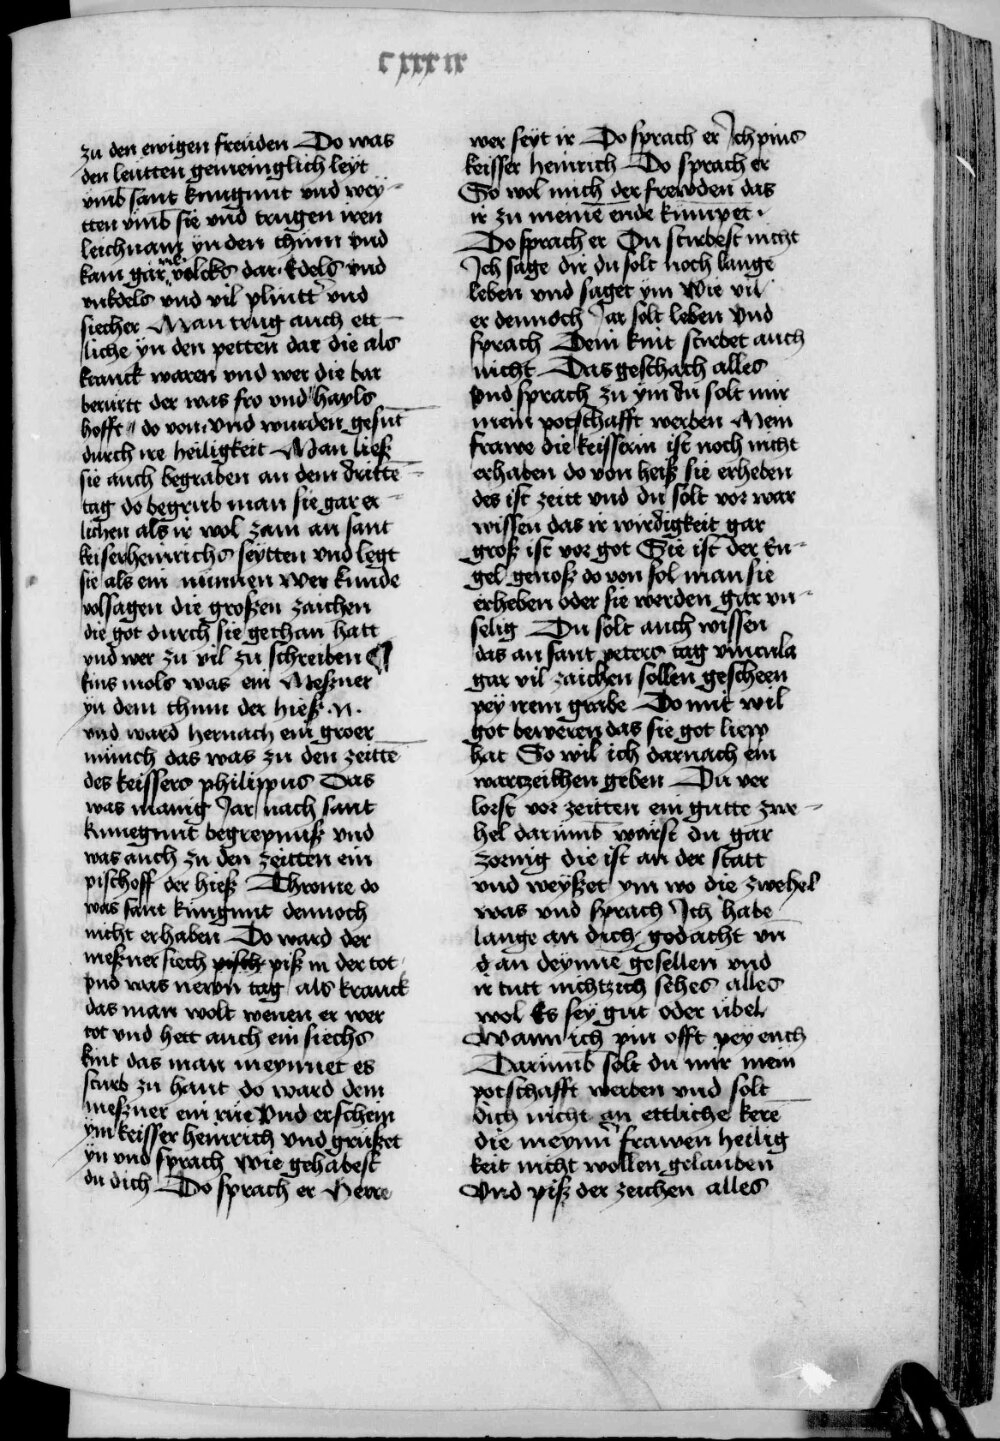 cxxxix
zu den ewigen freuden Do was
den leutten gemeinglich leyt
vmb sant kungunt vnd wey¬
tten vmb sie vnd trugen iren
leichnam yn den thum vnd
kam gar vil volcks dar Edels vnd
vnEdels vnd vil plintt vnd
siecher Man trug auch ett¬
liche yn den petten dar die als
kranck waren vnd wer die bar
berurtt der was fro vnd hayls
hofft do von vnd wurden gesūt
durch ire heiligkeit Man ließ
sie auch begraben an dem drittē
tag do begrub man sie gar er¬
lichen als ir wol zam an sant
keiserheinrichs seytten vnd legt
sie als ein nunnen Wer kunde
volsagen die großen zaichen
die got durch sie gethan hatt
vnd wer zu vil zu schreiben ¶
Eins mols was ein Meßner
yn dem thum der hieß .N.
vnd ward hernach ein groer
münch das was zu den zeittē
des keissers philippus Das
was manig Jar nach sant
kunegunt begrepnuß vnd
was auch zu den zeitten ein
pischoff der hieß Throme do
was sant kungunt dennoch
nicht erhaben Do ward der
meßner siech pisch piß in der tot
vnd was newn tag als kranck
das man wolt wenen er wer
tot vnd hett auch ein siechs
kint das man meynnet es
sturb zu hant do ward dem
meßner ein rue Vnd erschein
ym keisser heinrich vnd grußet
yn vnd sprach Wie gehabest
du dich Do sprach er Herre
wer seyt ir Do sprach er Ich pins
keisser heinrich Do sprach er
So wol mich der frewden das
ir zu meinē ende kumpet .
Do sprach er Du stirbest nicht
Ich sage dir du solt noch lange
leben vnd saget ym Wie vil
er dennoch Jar solt leben Vnd
sprach Dein kint stirbet auch
nicht Das geschach alles
vnd sprach zu ym du solt mir
mein potschafft werben Mein
frawe die keisserin ist noch nicht
erhaben do von heiß sie erheben
des ist zeitt vnd du solt vor war
wissen das ir wirdigkeit gar
groß ist vor got Sie ist der En¬
gel genoß do von sol man sie
erheben oder sie werden gar vn¬
selig Du solt auch wissen
das an sant peters tag vincula
gar vil zaichen sollen gescheen
pey irem grabe Do mit wil
got beweren das sie got liepp
hat So wil ich darnach ein
wartzeichen geben Du ver
lorst vor zeitten ein gutte zwe¬
hel darumb warst du gar
zornig die ist an der statt
vnd weyßet ym wo die zwehel
was vnd sprach Ich habe
lange an dich gedacht vn
d an deynne gesellen vnd
ir tutt nichtzich sehes alles
wol Es sey gut oder übel
Wann ich pin offt pey euch
Darumb solt du mir mein
potschafft werben vnd solt
dich nicht an ettliche kerē
die meynn frawen heilig
keit nicht wollen gelauben
Vnd piß der zeichen alles